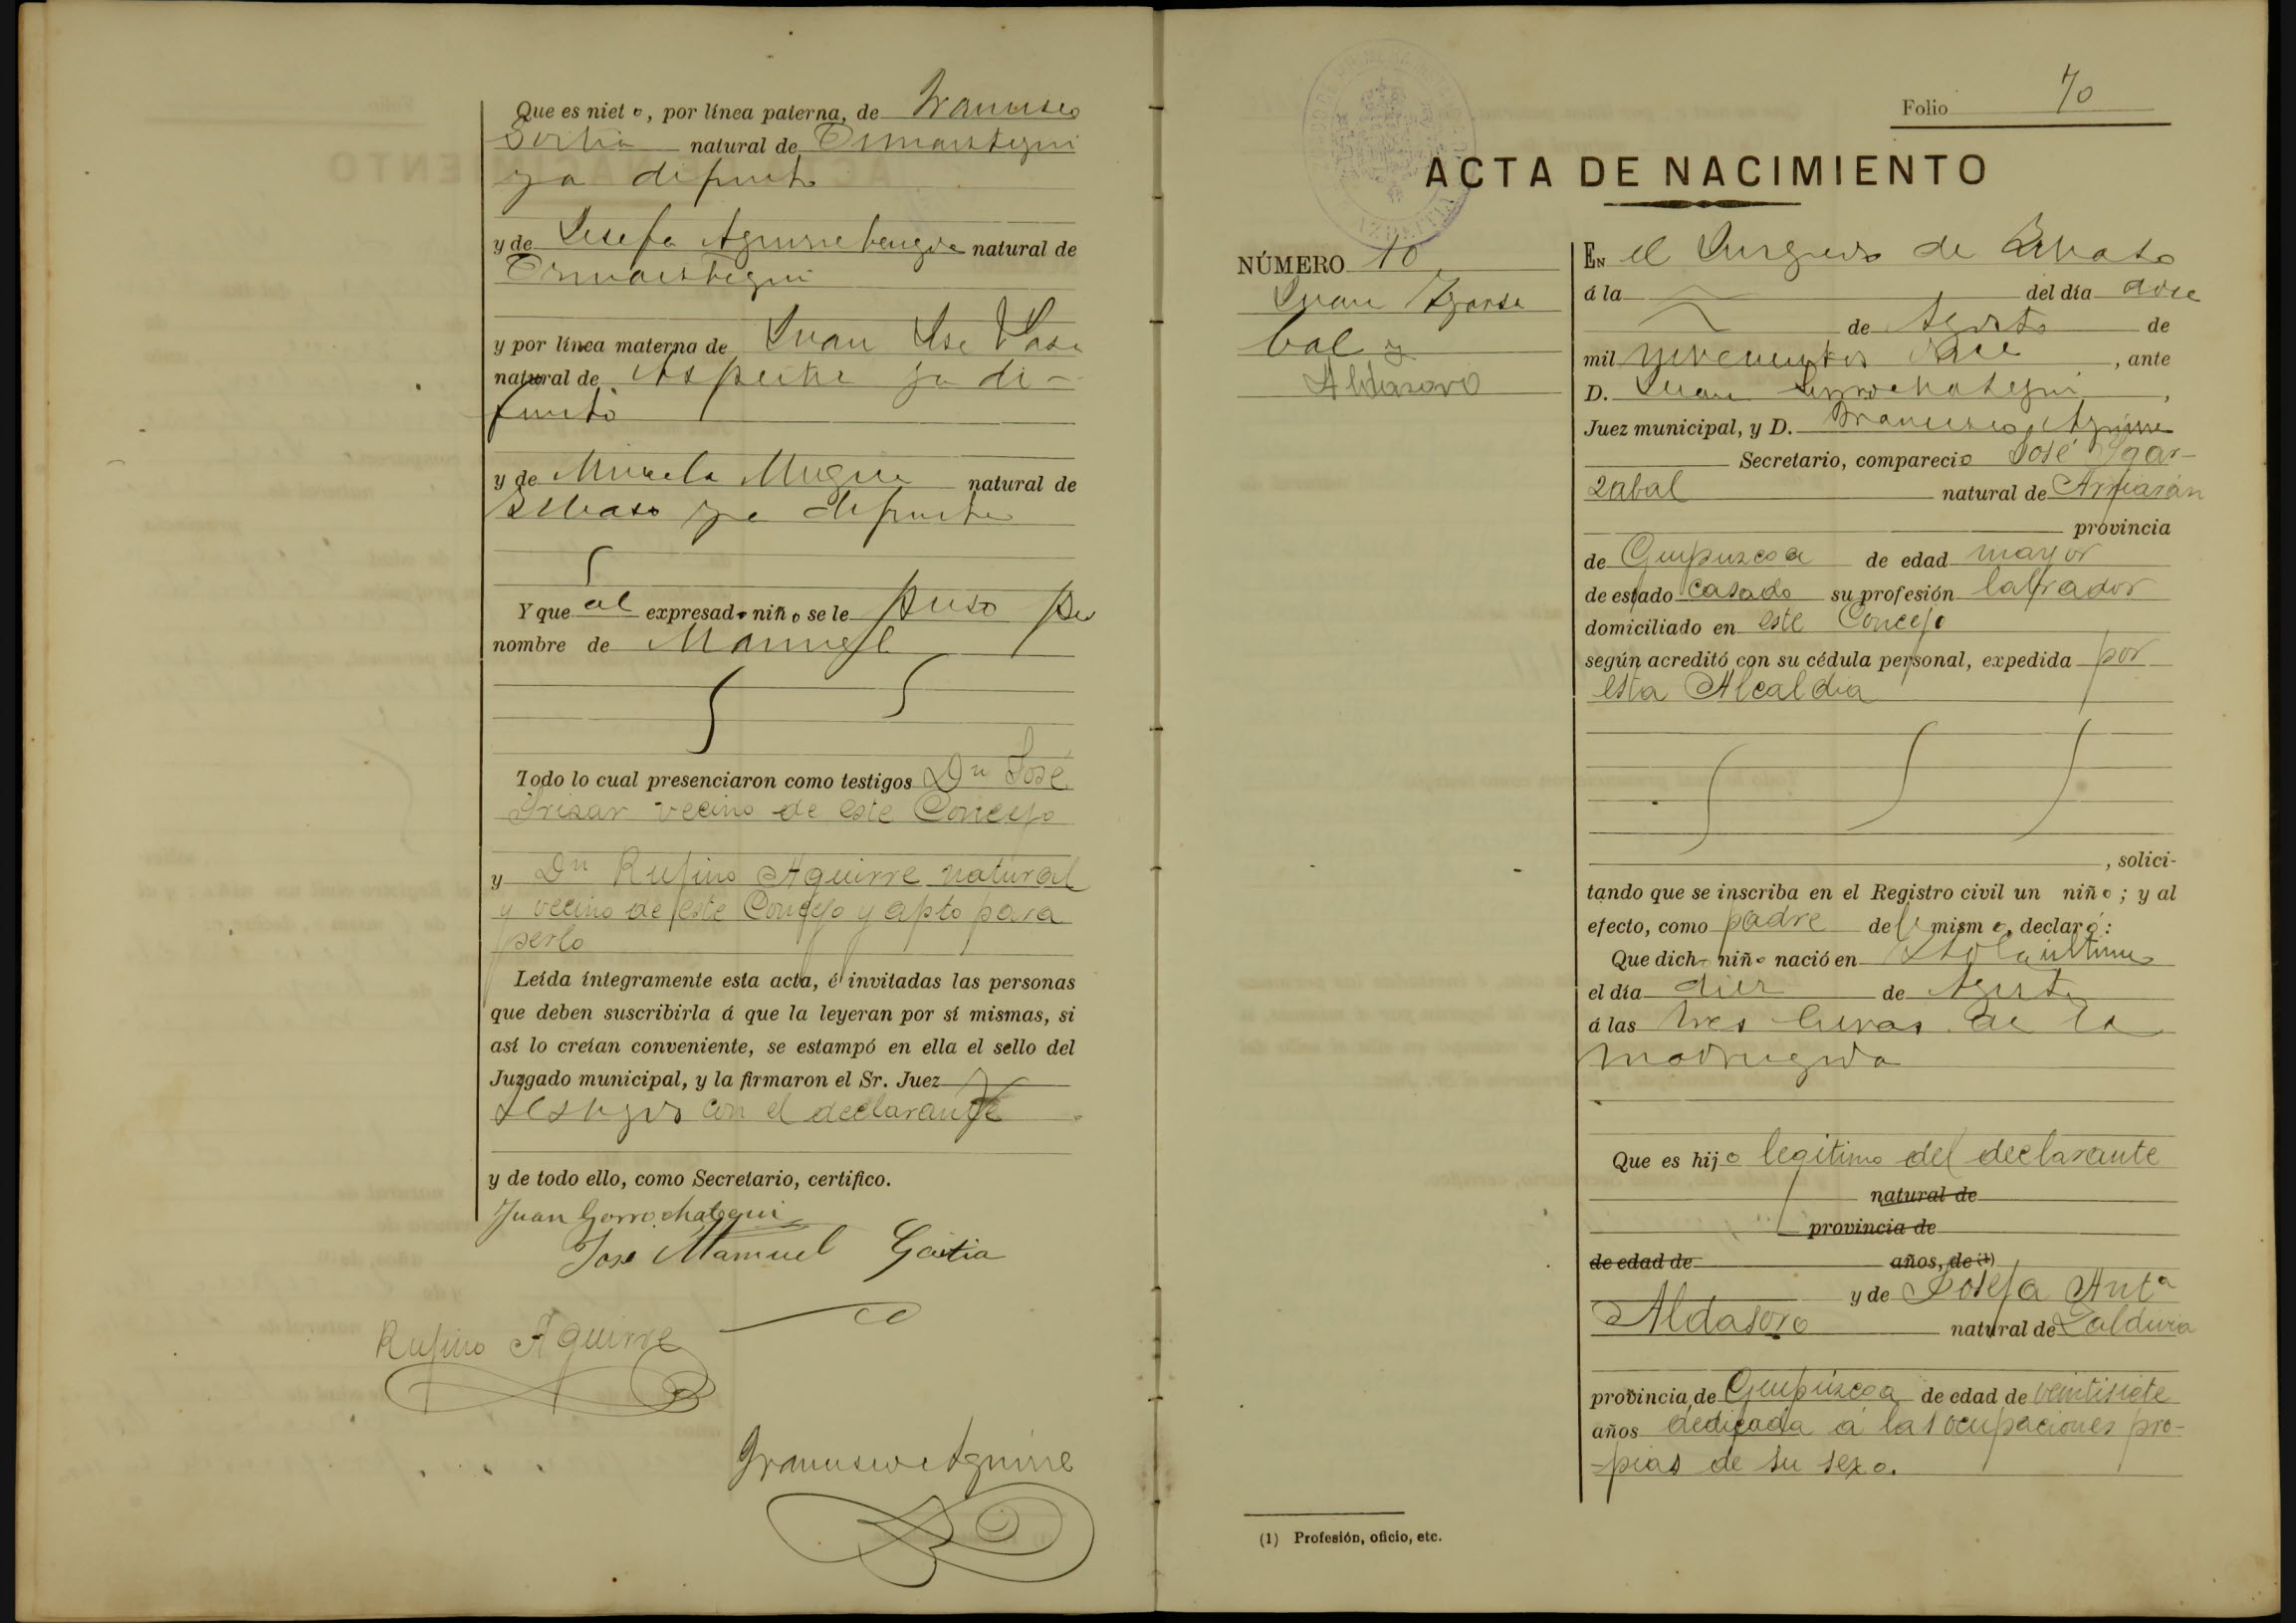 Que es nieto, por línea paterna, de Francisco
Goitia natural de Ormaiztegui
ya difunto
y de Josefa Aguirrebengoa natural de
Ormaiztegui
y por línea materna de Juan José
natural de ya di-
funto
y de Micaela Mugica natural de
ya difunta
Y que al expresado niño se le puso por
nombre de Manuel
Todo lo cual presenciaron como testigos Dn José
Irizar vecino de este Concejo
y Dn Rufino Aguirre natural
y vecino de este Concejo y apto para
serlo
Leída íntegramente esta acta, é invitadas las personas
que deben suscribirla á que la leyeran por sí mismas, si
así lo creían conveniente, se estampó en ella el sello del
Juzgado municipal, y la firmaron el Sr. Juez
testigos con el declarante
y de todo ello, como Secretario, certifico.
Juan Gorrochategui
Jose Manuel Goitia
Rufino Aguirre
Francisco Aguirre
Folio 70
ACTA DE NACIMIENTO
NÚMERO 10
Juan Igarza
bal y
Aldasoro
EN el Juzgado de
á la del día doce
de Agosto de
mil novecientos doce, ante
D. Juan Gorrochategui,
Juez municipal, y D. Francisco Aguirre
Secretario, compareció José Igar-
zabal natural de Arriarán
provincia
de Guipuzcoa de edad mayor
de estado casado su profesión labrador
domiciliado en este Concejo
según acreditó con su cédula personal, expedida por
esta Alcaldia
, solici-
tando que se inscriba en el Registro civil un niño; y al
efecto, como padre del mismo, declaró:
Que dicho niño nació en
el día diez de Agosto
á las tres horas de la
madrugada
Que es hijo legitimo del declarante
natural de
provincia de
de edad de años, de (1)
y de Josefa Antª
Aldasoro natural de Zaldivia
provincia de Guipúzcoa de edad de veintisiete
años dedicada a las ocupaciones pro-
-pias de su sexo.
(1) Profesión, oficio, etc.